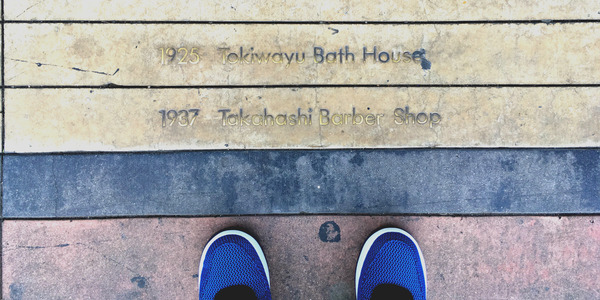 1925 Tokiwayu Bath House
1937 Takahashi Barber Shop